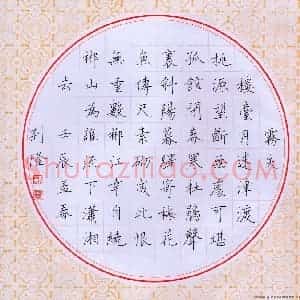 霧失
樓臺月迷津渡
桃源望斷無處可堪
孤館閉春寒杜鵑聲
裏斜陽暮驛寄梅花
魚傳尺素砌成此恨
無重數郴江幸自繞
郴山為誰流下瀟湘
去 壬辰孟春
Shufaziliao.com